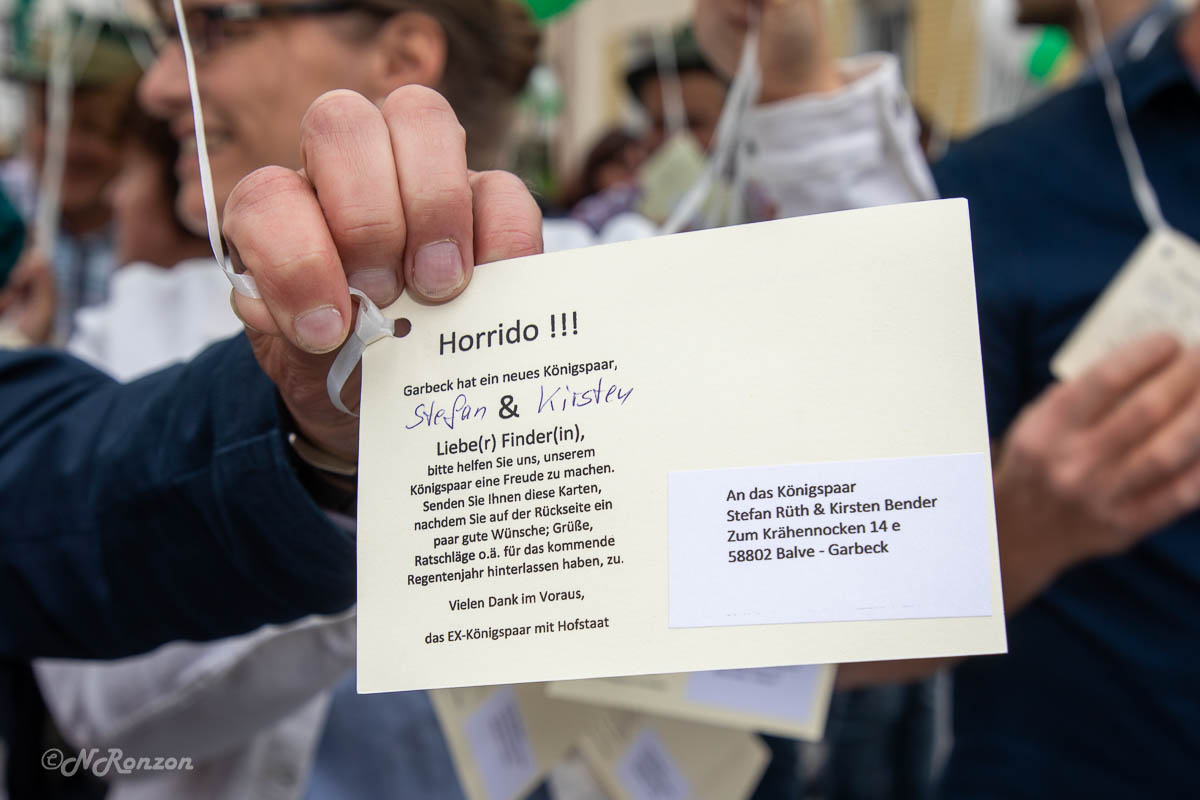 Horrido !!!
Garbeck hat ein neues Königspaar,
Stefan & Kirsten
Liebe(r) Finder(in),
bitte helfen Sie uns, unserem
Königspaar eine Freude zu machen.
Senden Sie Ihnen diese Karten,
nachdem Sie auf der Rückseite ein
paar gute Wünsche; Grüße,
Ratschläge o.ä. für das kommende
Regentenjahr hinterlassen haben, zu.
Vielen Dank im Voraus,
das EX-Königspaar mit Hofstaat
An das Königspaar
Stefan Rüth & Kirsten Bender
Zum Krähennocken 14 e
58802 Balve - Garbeck
©NRonzon